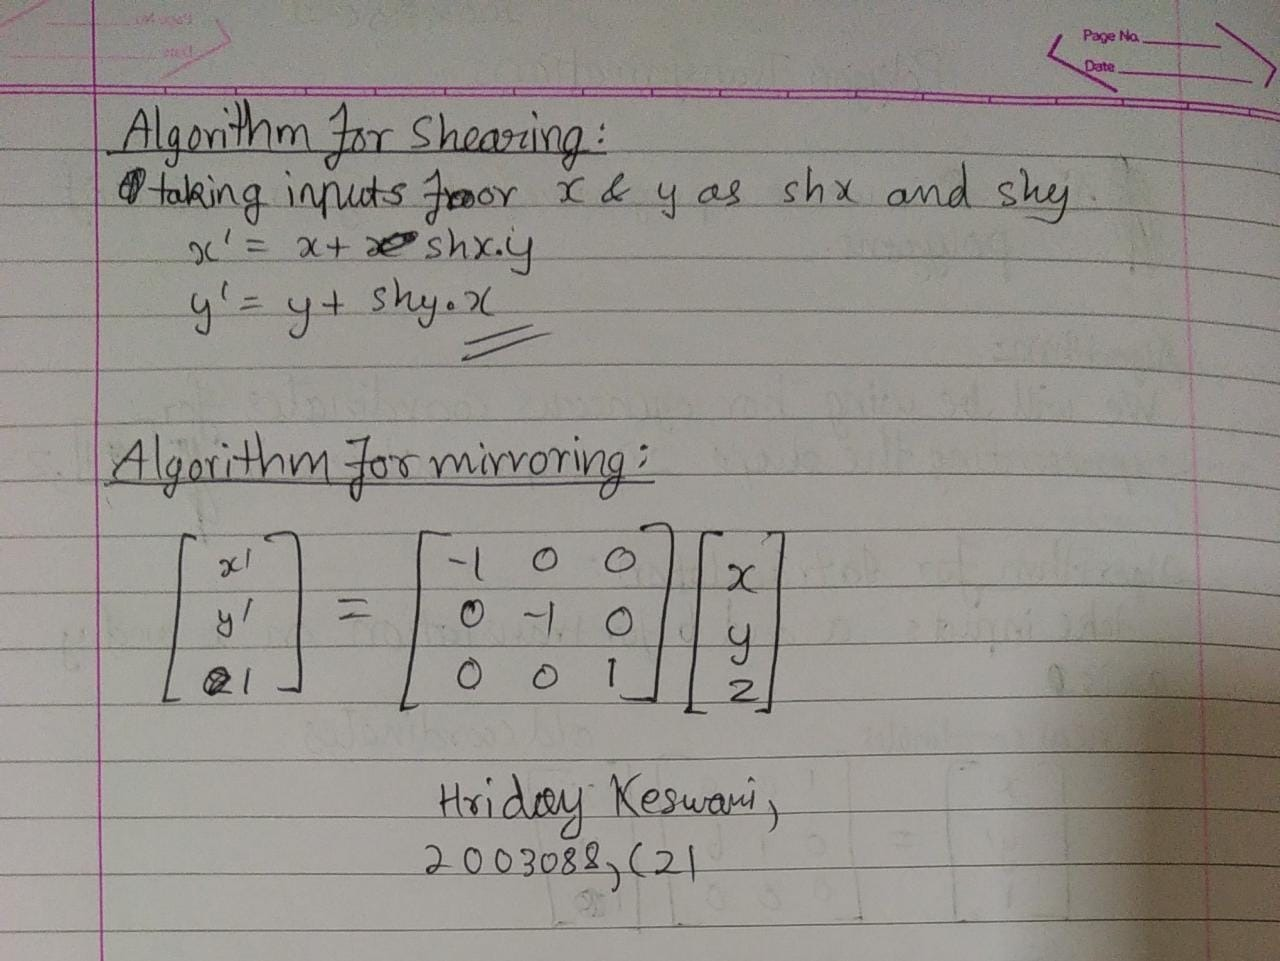 Page No.
Date
Algorithm for Shearing:
taking inputs for x & y as shx and shy.
x' = x + shx.y
y' = y + shy.x
Algorithm for mirroring:
[x' y' 1] = [-1 0 0
0 -1 0
0 0 1] [x y z]
Hriday Keswani,
2003088, C21